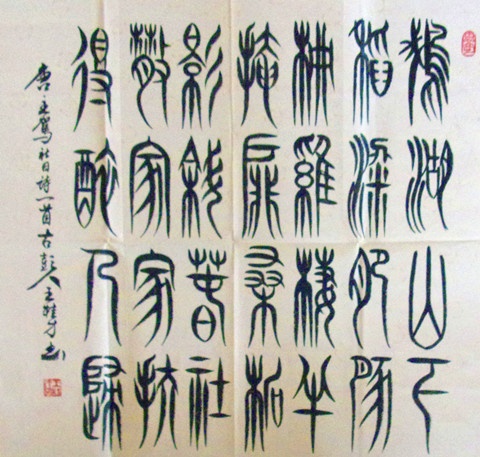 鵝湖山下
稻粱肥豚
柵雞棲半
掩扉桑柘
影斜春社
散家家扶
得醉人歸
唐王駕社日詩一首古彭人王才书